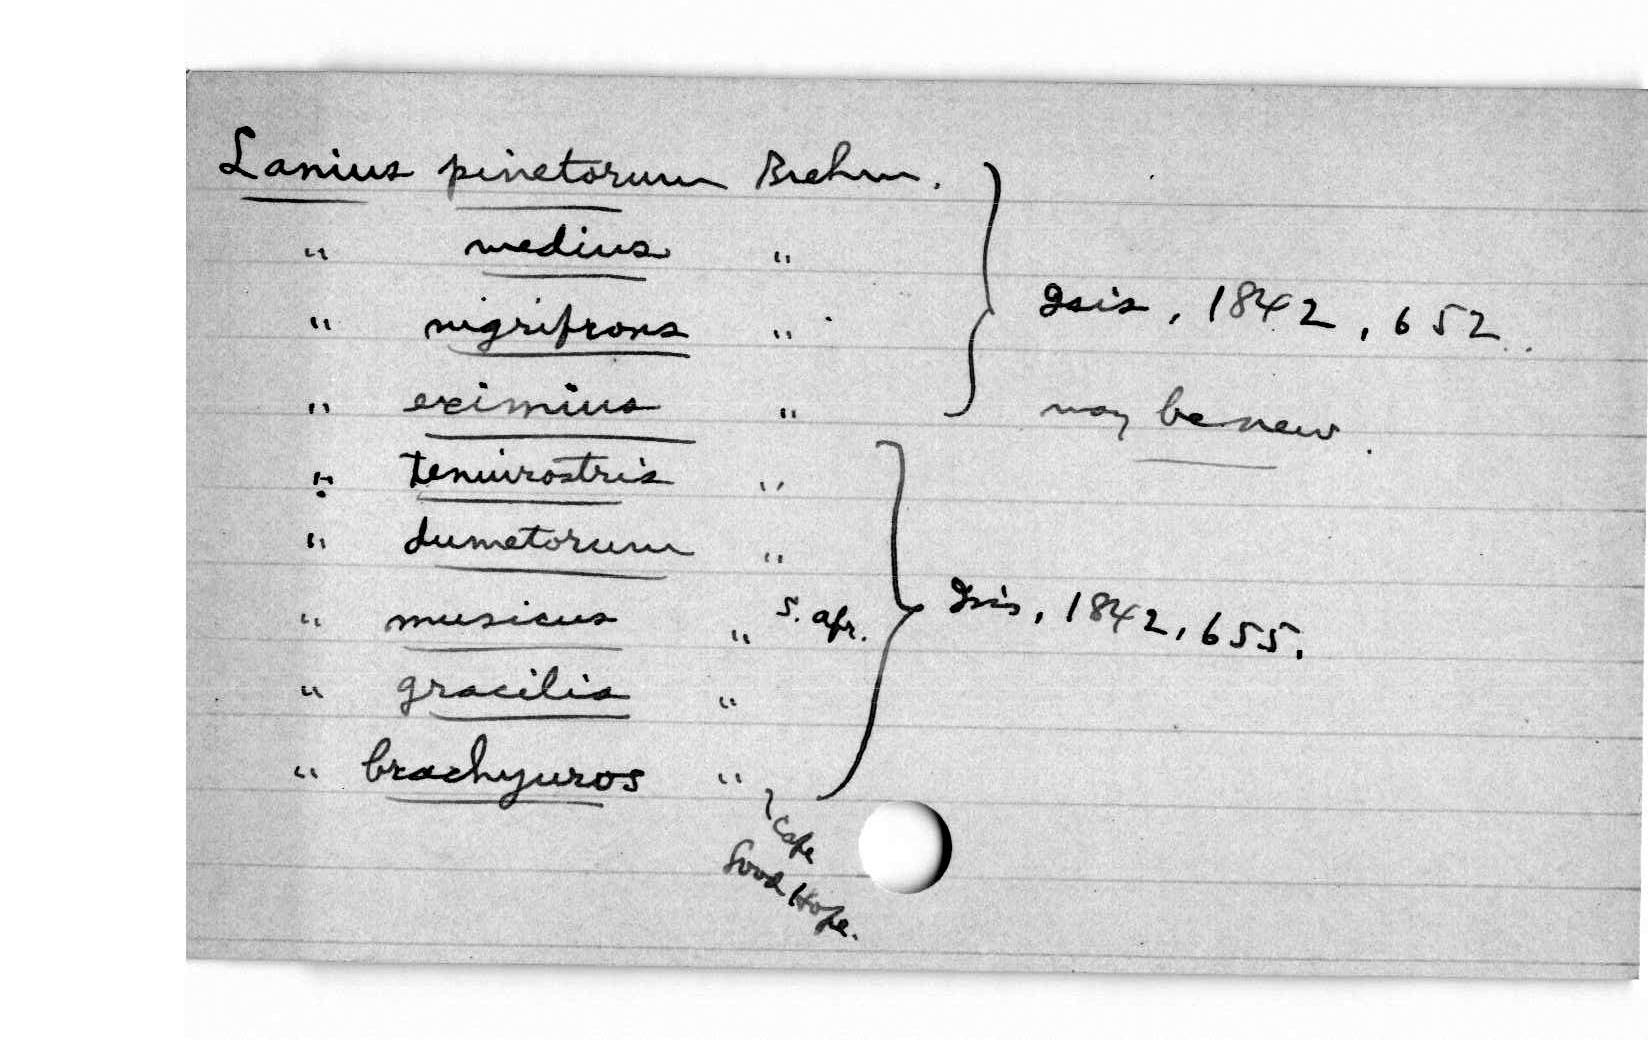 Lanius pinetorum Brehm.
" medius "
" nigrifrons "
" eximius "
Isis, 1842, 652.
may be new.
" tenuirostris "
" dumetorum "
" musicus " S. Afr.
" gracilis "
" brachyuros "
Isis, 1842, 655.
Cape
Good Hope.